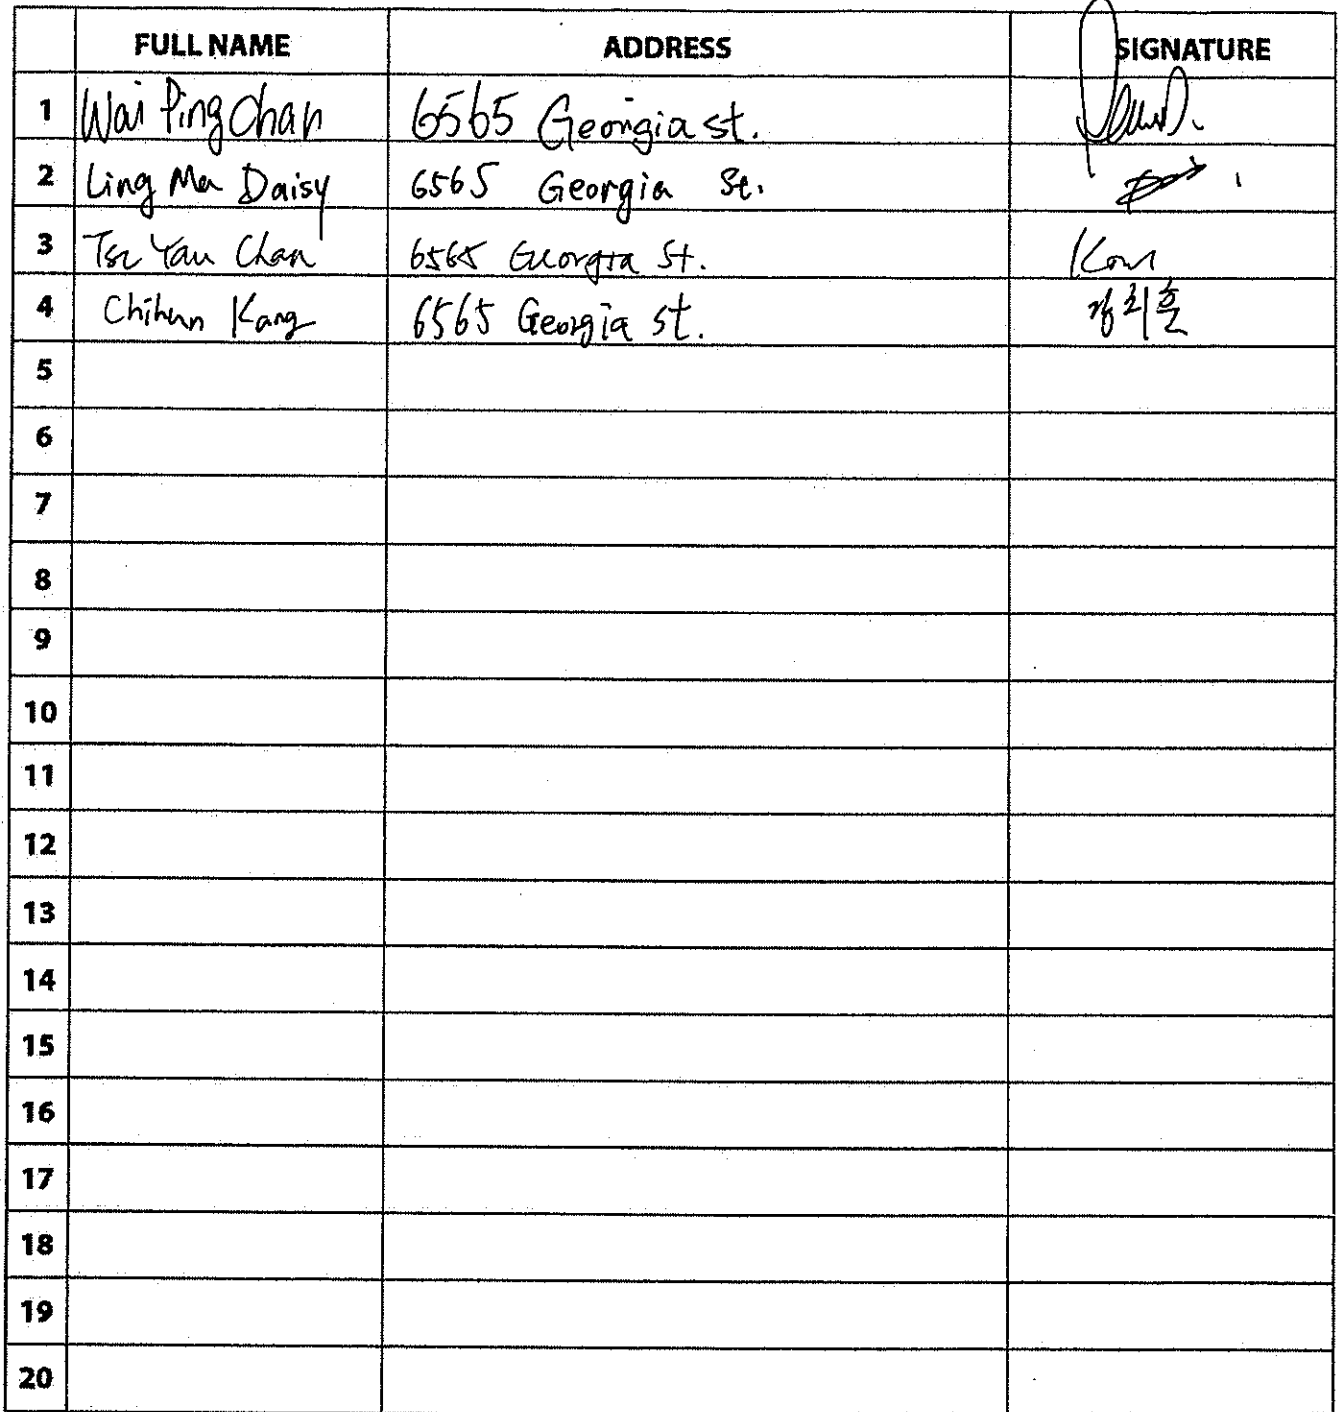 FULL NAME ADDRESS SIGNATURE
1 Wai Ping Chan 6565 Georgia st.
2 Ling Ma Daisy 6565 Georgia St.
3 Tsz Yau Chan 6565 Georgia St.
4 Chihun Kang 6565 Georgia st. 강치훈
5
6
7
8
9
10
11
12
13
14
15
16
17
18
19
20